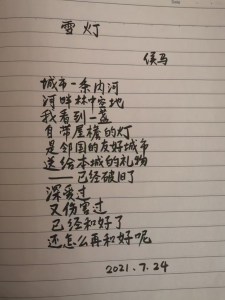 雪灯
侯马
城市一条内河
河畔林中空地
我看到一盏
自带屋檐的灯
是邻国的友好城市
送给本城的礼物
——已经破旧了
深爱过
又伤害过
已经和好了
还怎么再和好呢
2021.7.24